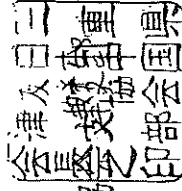 三重県
日本中国
友好協会
津支部
会長之印